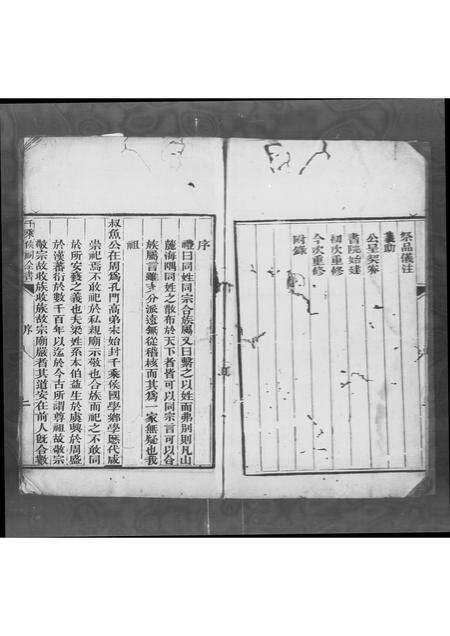 祭品儀注
襄助
公呈契寮
書院始建
初次重修
今次重修
附錄
序
禮曰同姓同宗合族屬又曰繫之以姓而弗別則凡山
陬海隅同姓之散布於天下者皆可以同宗言可以合
族屬言雖支分派遠無從稽核而其為一家無疑也我
祖
叔魚公在周為孔門高弟宋始封千乘侯國學鄉學歷代咸
崇祀焉不敢祀於私親廟示敬也合族而祀之不敢同
於所安褻之義也夫梁姓系本伯益生於虞興於周盛
於漢蕃衍於數千百年以迄於今古所謂尊祖故敬宗
敬宗故收族收族故宗廟嚴者其道安在前人既合數
千乘侯祠全書
序
二